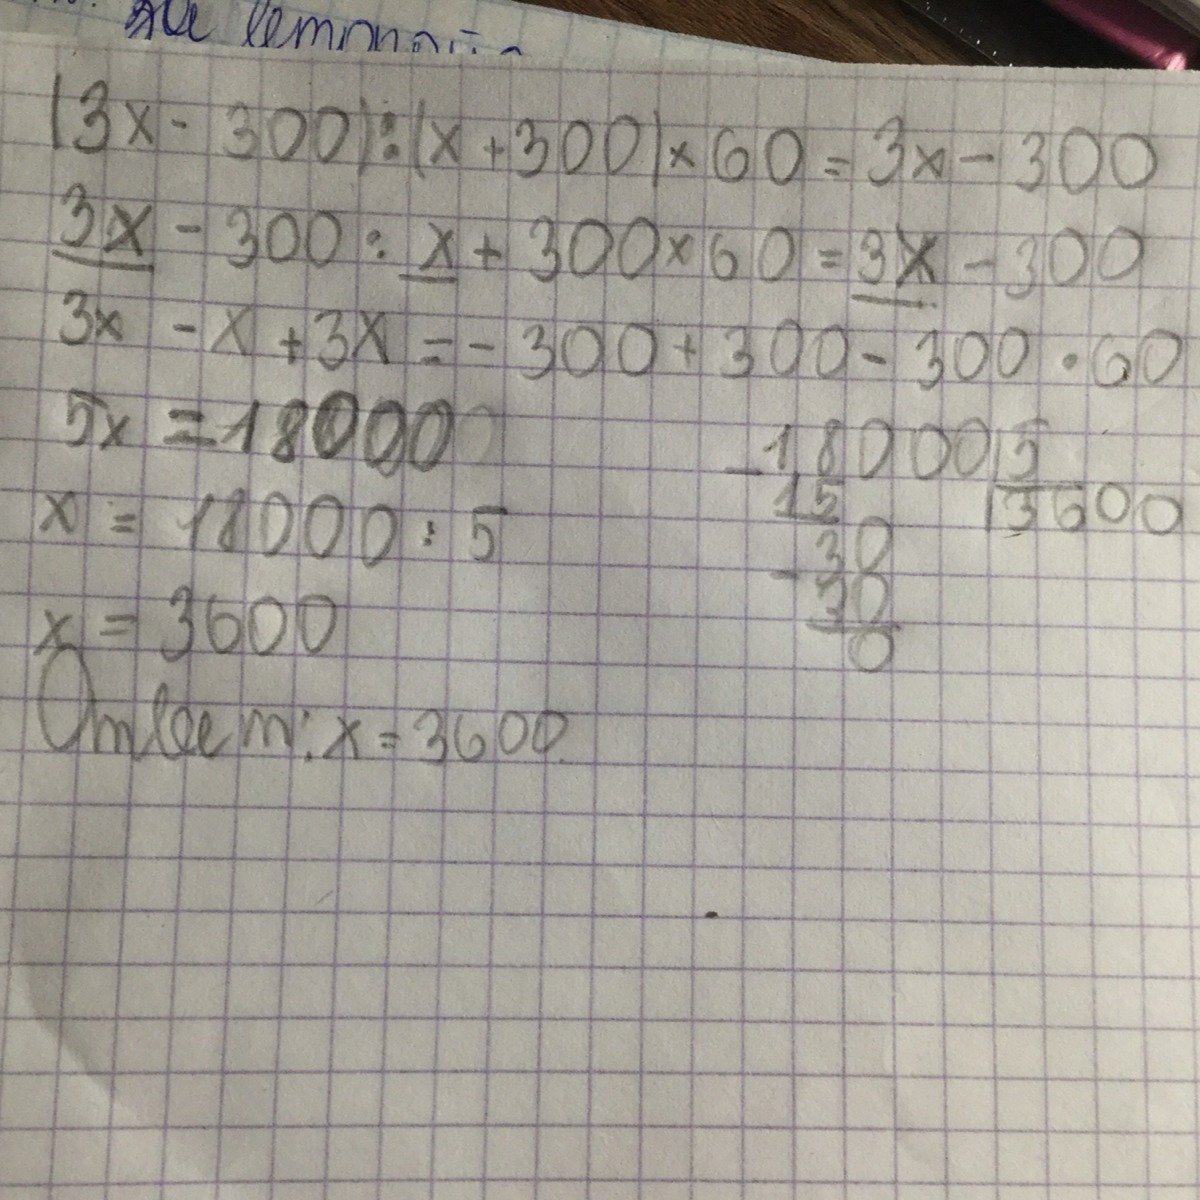 (3x - 300) : (x + 300) × 60 = 3x - 300
3x - 300 : x + 300 × 60 = 3x - 300
3x - x + 3x = - 300 + 300 - 300 · 60
5x = 18000
x = 18000 : 5
x = 3600
Ответ: x = 3600.
- 18000 5
15 3600
30
- 30
0